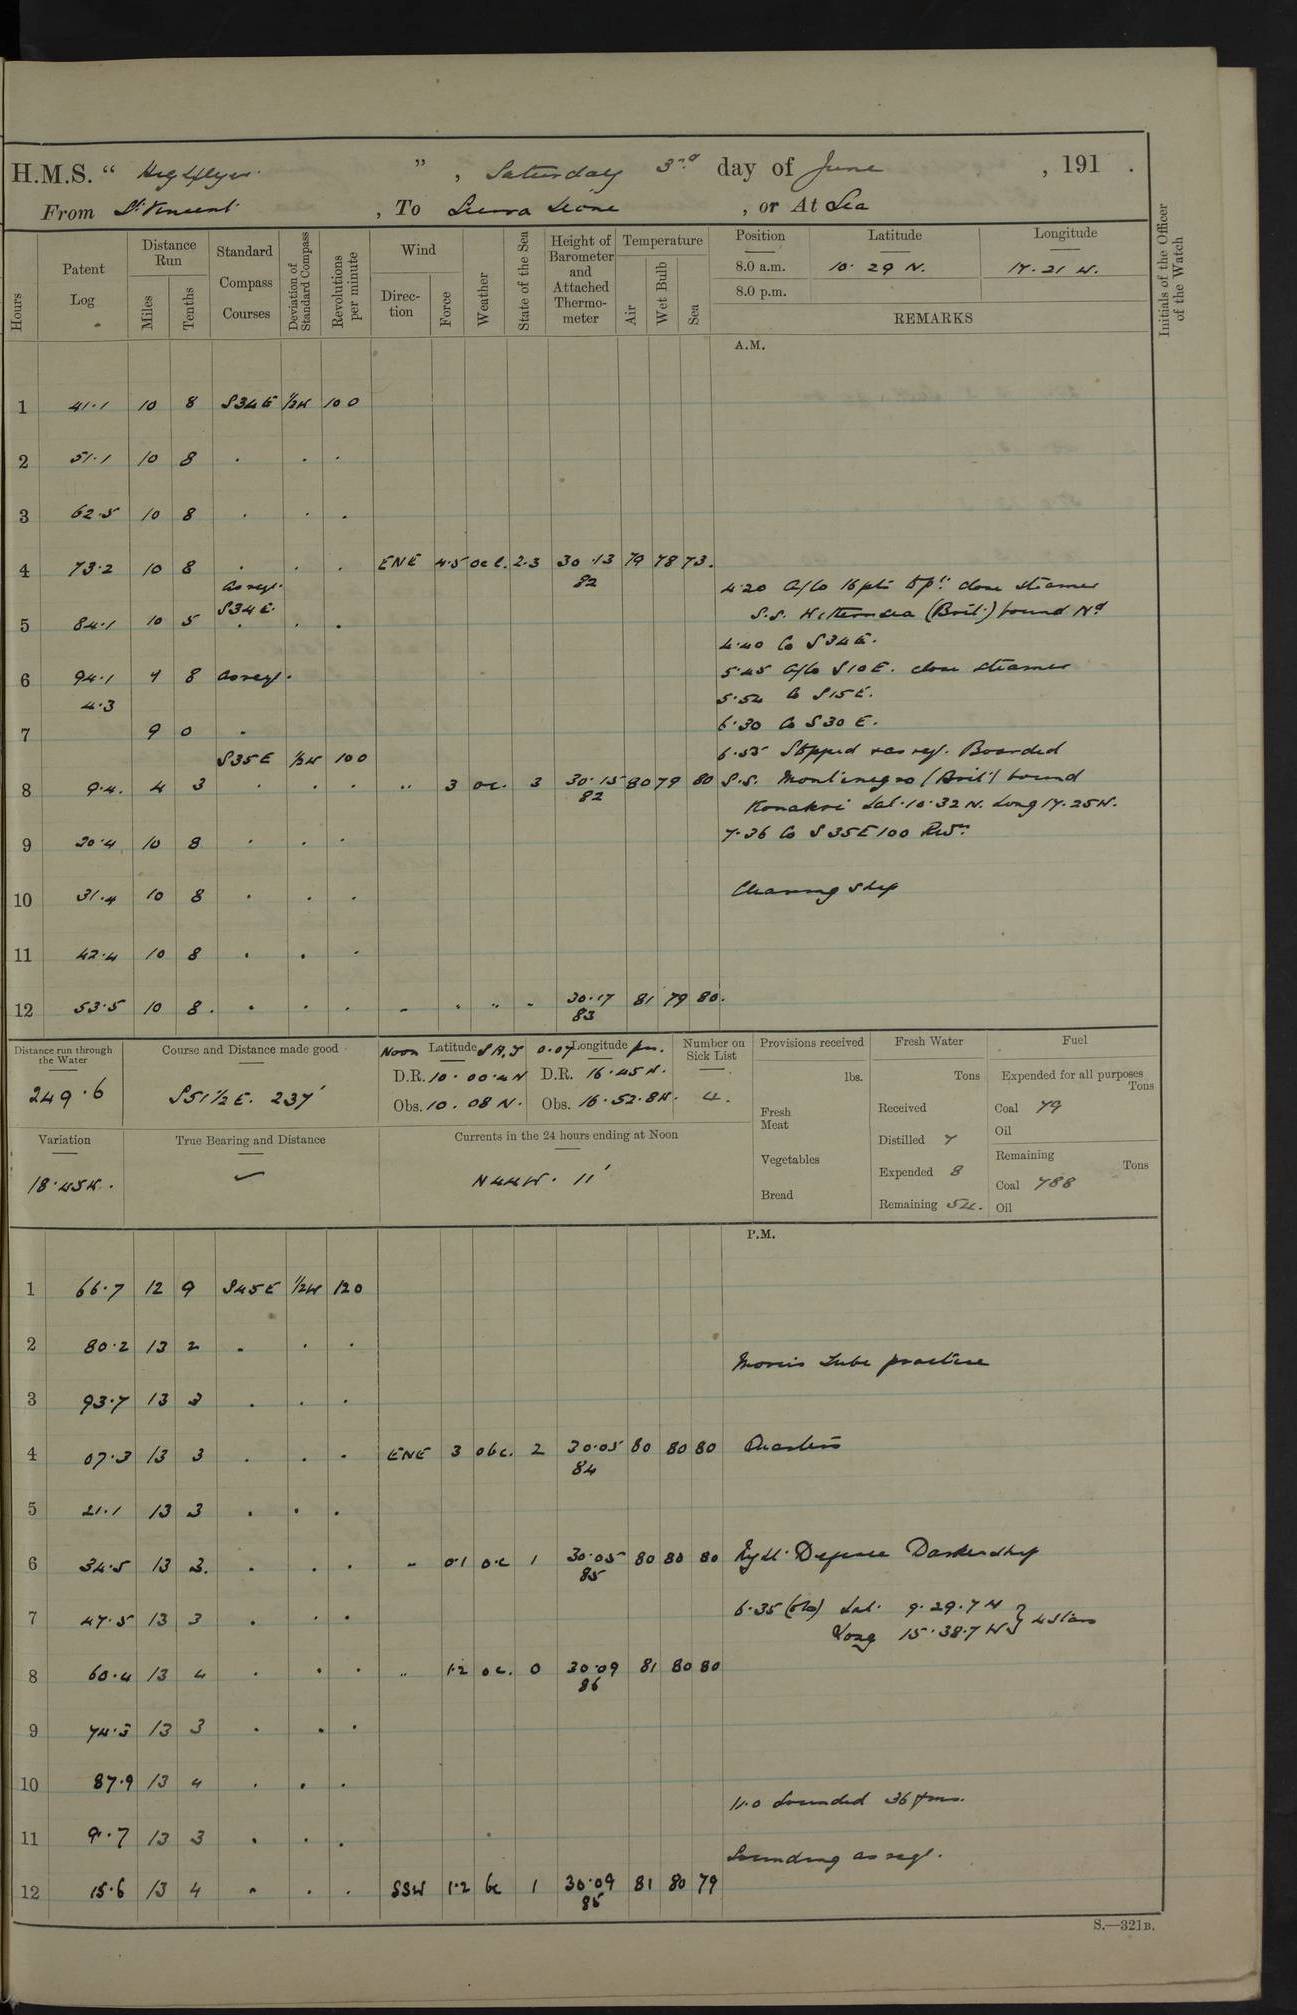 H.M.S. “ Highflyer ” , Saturday 3rd day of June , 191 .
From St Vincent , To Sierra Leone , or At Sea
Hours
Patent Log
Distance Run
Miles
Tenths
Standard Compass Courses
Deviation of Standard Compass
Revolutions per minute
Wind
Direction
Force
Weather
State of the Sea
Height of Barometer and Attached Thermometer
Temperature
Air
Wet Bulb
Sea
Position
8.0 a.m.
8.0 p.m.
Latitude
10. 29 N.
Longitude
17. 21 W.
REMARKS
Initials of the Officer of the Watch
A.M.
1 41.1 10 8 S34E 1/2W 100
2 51.1 10 8 . . .
3 62.5 10 8 . . .
4 73.2 10 8 . . . ENE 4.5 oc 2.3 30.13 79 78 73.
82
As reqt.
4.20 A/Co 16 pts to close steamer
S34E.
S.S. (Brit.) bound Nd
5 84.1 10 5 . . .
4.40 Co S34E.
6 94.1 7 8 As reqt.
5.45 A/Co S10E. close steamer
4.3
5.52 Co S15E.
7 9 0 .
6.30 Co S30E.
S35E 1/2W 100
6.55 Stopped as reqt. Boarded
8 9.4. 4 3 . . . " 3 oc. 3 30.15 80 79 80
82
S.S. Montenegro (Brit) bound
Konakri Lat. 10.32N. Long 17.25W.
7.36 Co S35E 100 Revs.
9 20.4 10 8 . . .
10 31.4 10 8 . . .
Cleaning ship
11 42.4 10 8 . . .
12 53.5 10 8 . . . " " " " 30.17 81 79 80.
83
Distance run through the Water
249.6
Course and Distance made good
S51 1/2E. 237'
Noon Latitude Longitude
D.R. 10. 00.4N D.R. 16.45W.
Obs. 10. 08N. Obs. 16.52.8W.
Number on Sick List
4.
Variation
18.45W.
True Bearing and Distance
Currents in the 24 hours ending at Noon
N44W. 11'
Provisions received
lbs.
Fresh Meat
Vegetables
Bread
Fresh Water
Tons
Received
Distilled 7
Expended 8
Remaining 54.
Fuel
Expended for all purposes
Tons
Coal 79
Oil
Remaining
Tons
Coal 788
Oil
P.M.
1 66.7 12 9 S45E 1/2W 120
2 80.2 13 2 . . .
Morris Tube practice
3 93.7 13 3 . . .
4 07.3 13 3 . . . ENE 3 obc. 2 30.05 80 80 80 Quarters
84
5 21.1 13 3 . . .
6 34.5 13 3. . . . " 0.1 oc 1 30.05 80 80 80 Night Defence Darken ship
85
6.35 (obs) Lat. 9.29.7N
7 47.5 13 3 . . .
Long 15.38.7W } 4 stars
8 60.4 13 4 . . . " 1.2 oc. 0 30.09 81 80 80
86
9 74.3 13 3 . . .
10 87.9 13 4 . . .
11.0 Sounded 36 fms.
11 9.7 13 3 . . .
Sounding as reqt.
12 15.6 13 4 . . . SSW 1.2 bc 1 30.09 81 80 79
85
S.—321B.